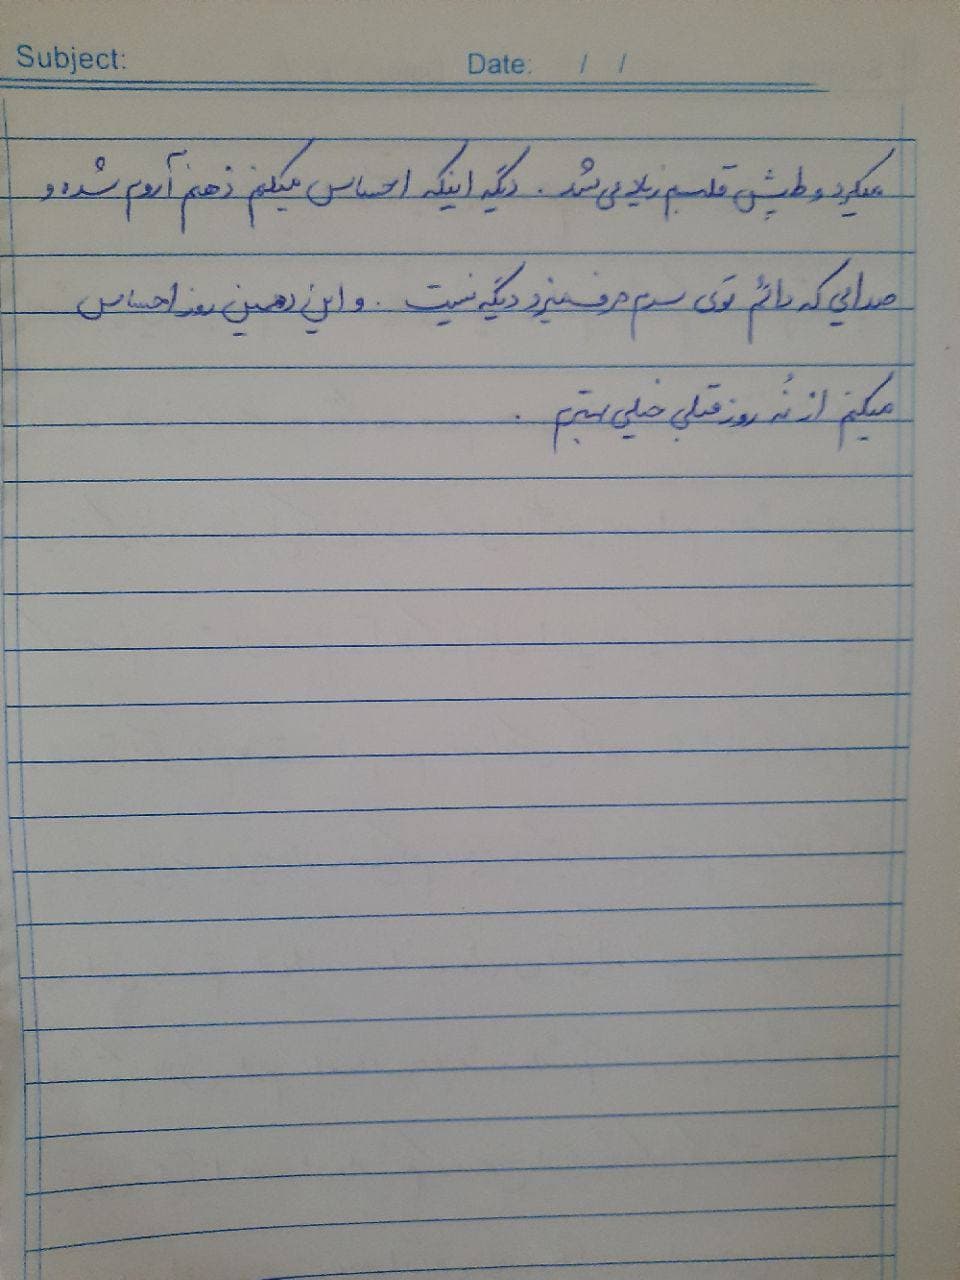 Subject: Date: / /
میکرد و طپش قلبم زیاد می شد . دیگه اینکه احساس میکنم ذهنم آروم شده و
صدایی که دائم توی سرم حرف میزد دیگه نیست . و این دهمین روز احساس
میکنم از نُه روز قبلی خیلی بهترم .